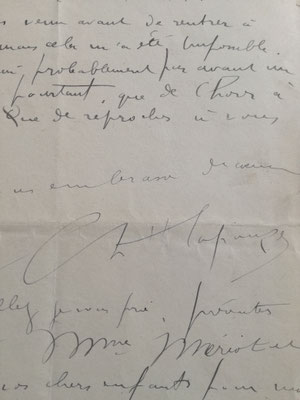 venu avant de rentrer à
mais cela m'a été impossible.
probablement pas avant un
pourtant, que de choses à
que de reproches à vous
embrasse de cœur
je vous prie, présenter
Mme Mériot et
vos chers enfants pour moi